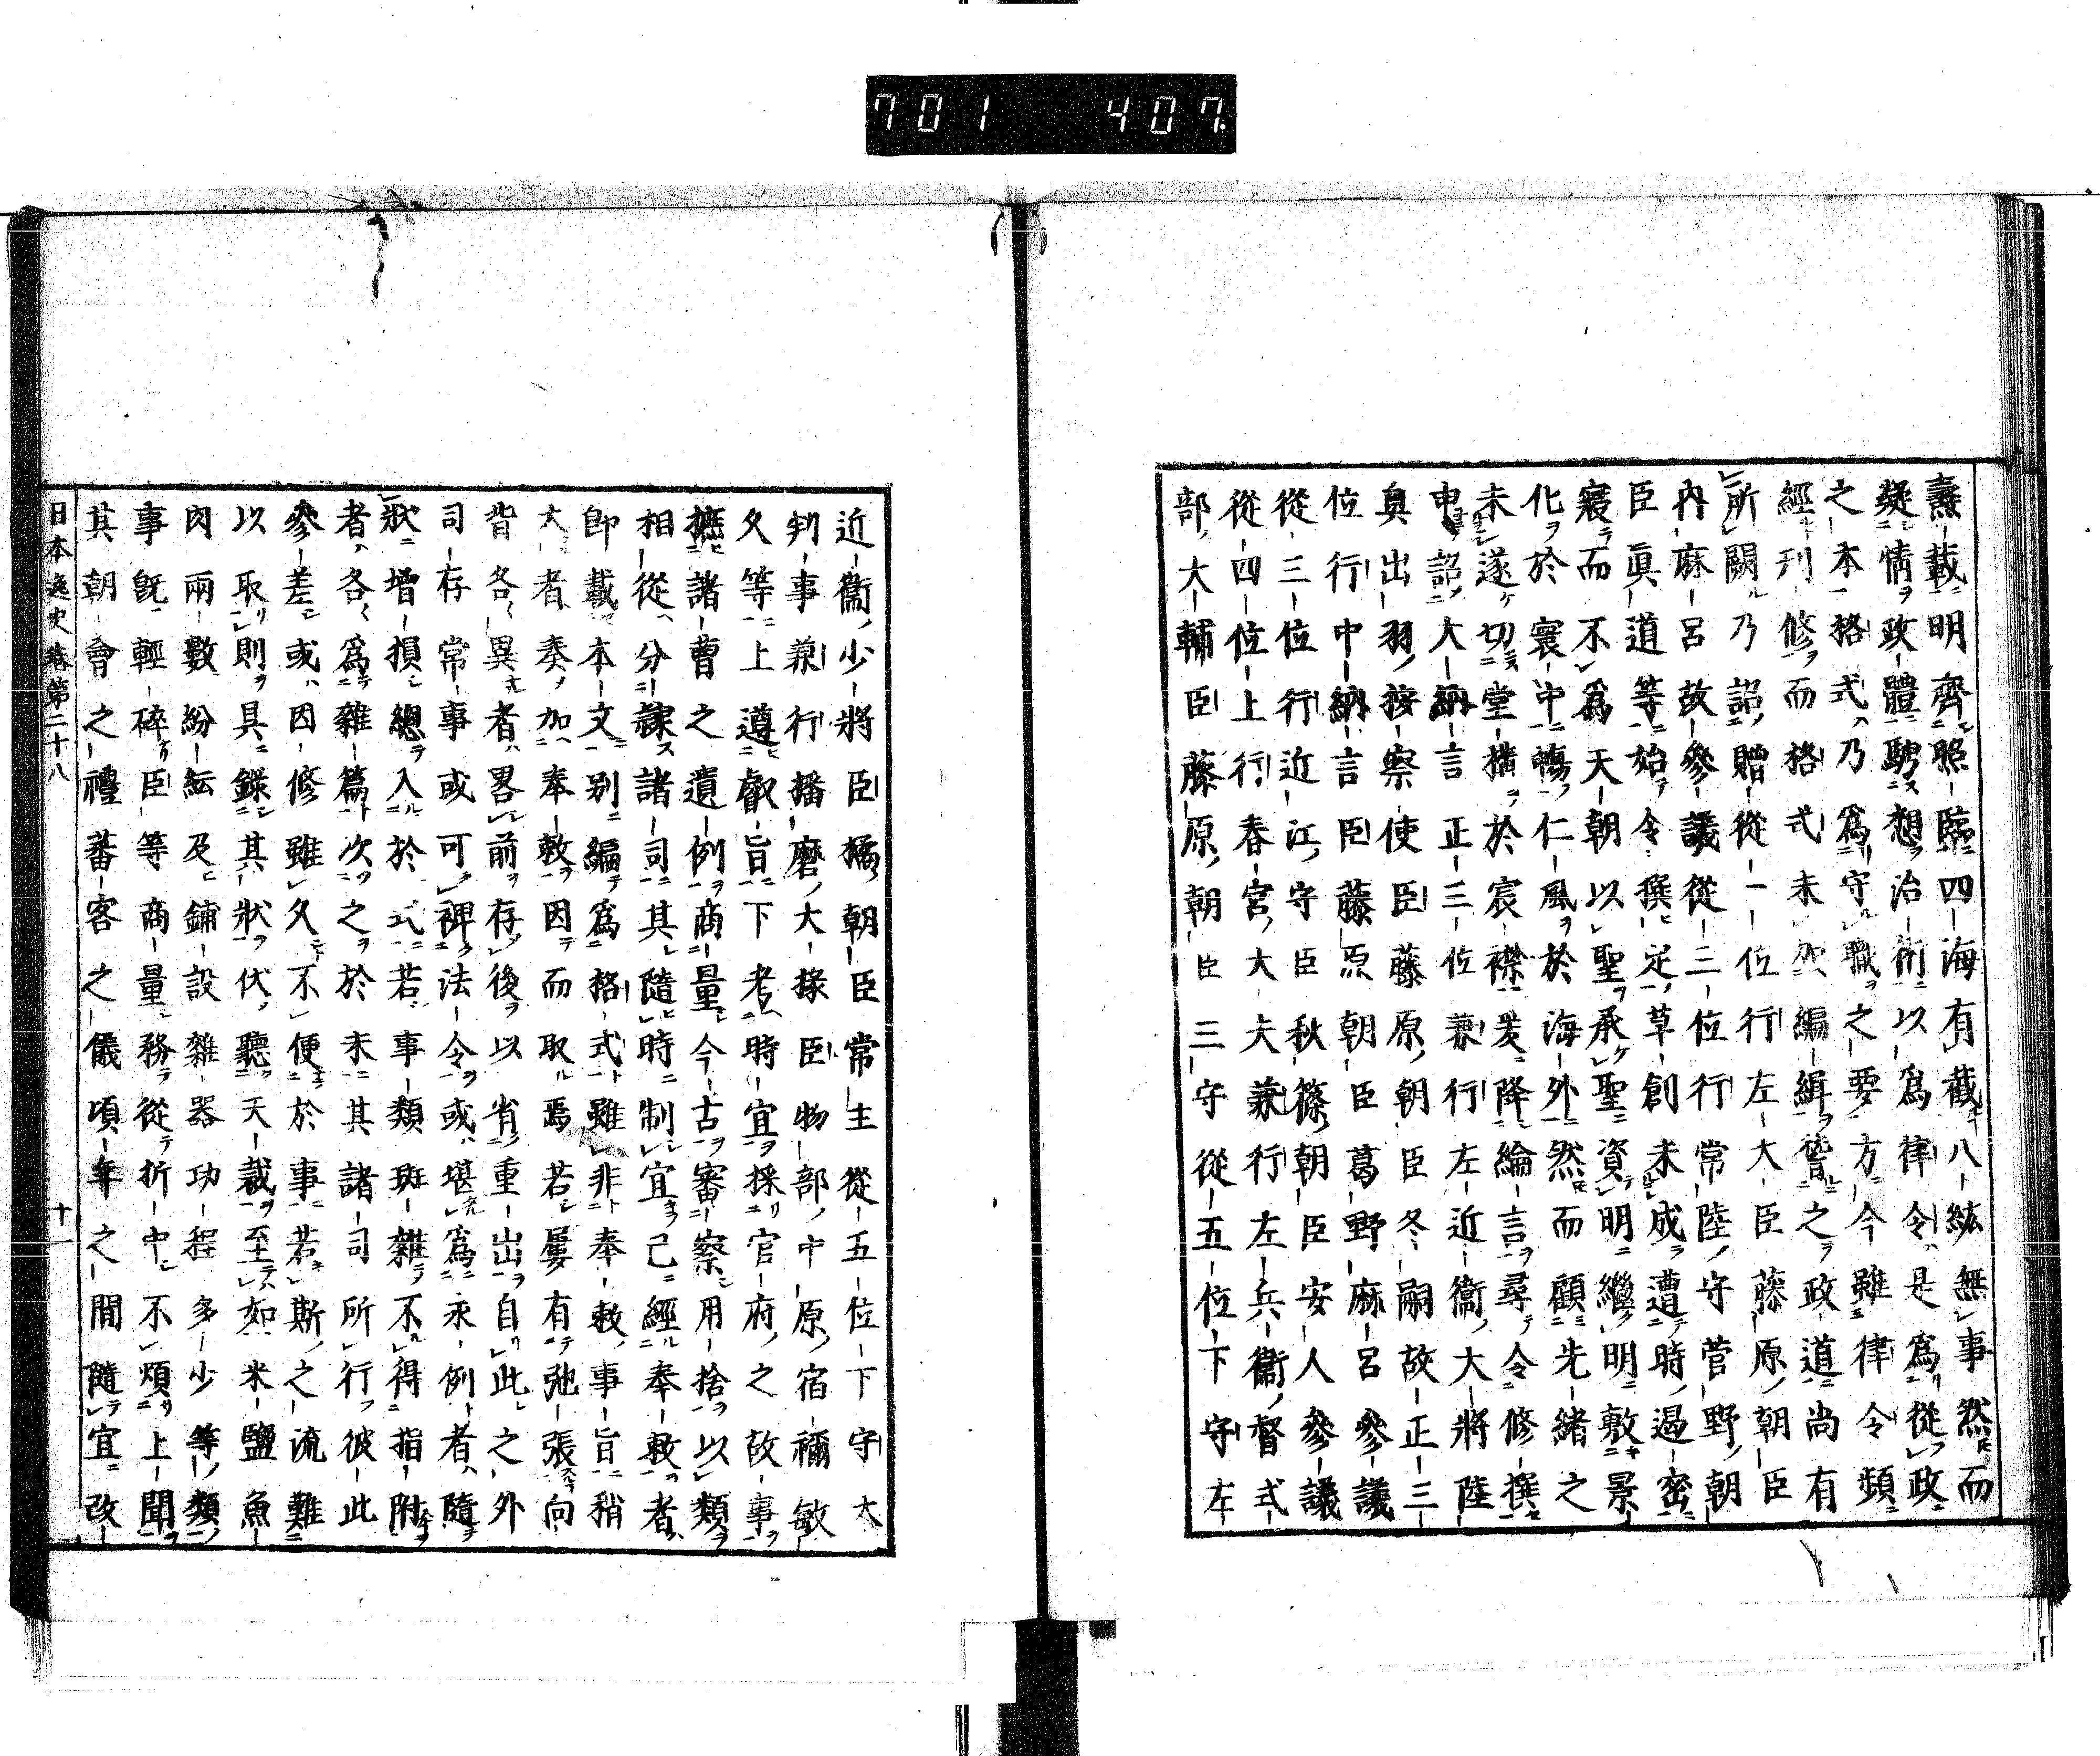 701 407
燾載明齊照臨四海有截八紘無事然而
凝情政體騁想治術以爲律令是爲從政
之本格式乃爲守職之要方今雖律令頻
經刋修而格式未編緝稽之政道尚有
所闕乃詔贈從一位行左大臣藤原朝臣
内麻呂故參議從三位行常陸守菅野朝
臣眞道等始令撰定草創未成遭時遏密
寢而不爲天朝以聖承聖資明繼明敷景
化於寰中暢仁風於海外然而顧先緒之
未遂切堂搆於宸襟爰降綸言尋令修撰
申詔大納言正三位兼行左近衞大將陸
奥出羽按察使臣藤原朝臣冬嗣故正三
位行中納言臣藤原朝臣葛野麻呂參議
從三位行近江守臣秋篠朝臣安人參議
從四位上行春宮大夫兼行左兵衞督式
部大輔臣藤原朝臣三守從五位下守左
近衞少將臣橘朝臣常主從五位下守大
判事兼行播磨大掾臣物部中原宿禰敏
久等上遵叡旨下考時宜採官府之故事
摭諸曹之遺例商量今古審察用捨以類
相從分隷諸司其隨時制宜已經奉敕者
卽載本文别編爲格式雖非奉敕事旨稍
大者奏加奉敕因而取焉若屢有弛張向
背各異者畧前存後以省重出自此之外
司存常事或可裨法令或堪爲永例者隨
狀增損總入於式若事類斑雜不得指附
者各爲雜篇次之於末其諸司所行彼此
參差或因修雖久不便於事若斯之流難
以取則具錄其狀伏聽天裁至如米鹽魚
肉兩數紛紜及鋪設雜器功程多少等類
事旣輕碎臣等商量務從折中不煩上聞
其朝會之禮蕃客之儀頃年之間隨宜改
日本逸史卷第二十八 十一